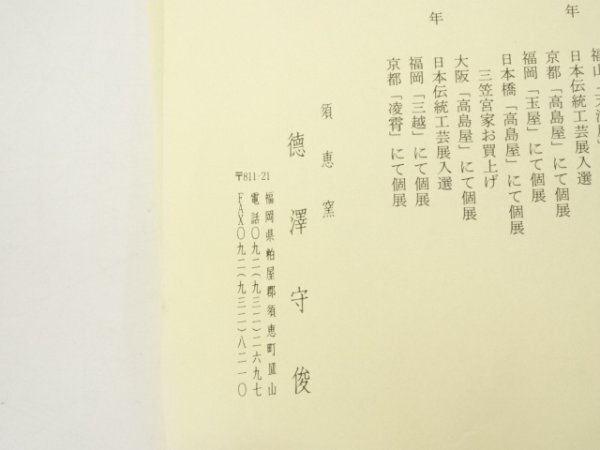 年
日本伝統工芸展入選
京都「高島屋」にて個展
福岡「玉屋」にて個展
日本橋「高島屋」にて個展
三笠宮家お買上げ
大阪「高島屋」にて個展
年
日本伝統工芸展入選
福岡「三越」にて個展
京都「凌霄」にて個展
須恵窯
德澤守俊
〒811-21
福岡県粕屋郡須恵町皿山
電話〇九二(九三二)二六九七
FAX〇九二(九三二)八二一〇